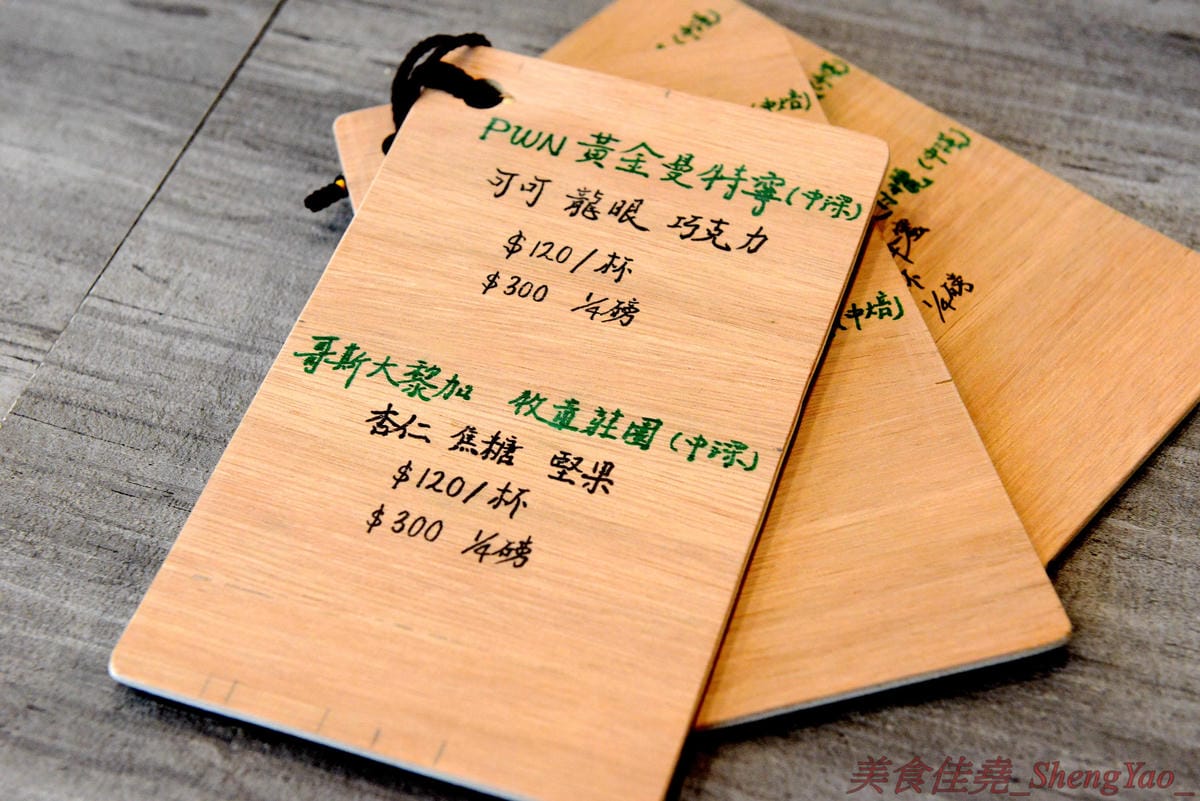 PWN 黃金曼特寧(中深)
可可 龍眼 巧克力
$120/杯
$300 1/4磅
哥斯大黎加 牧童莊園(中深)
杏仁 焦糖 堅果
$120/杯
$300 1/4磅
(中焙)
(中焙)
1/4磅
美食佳堯_ShengYao_